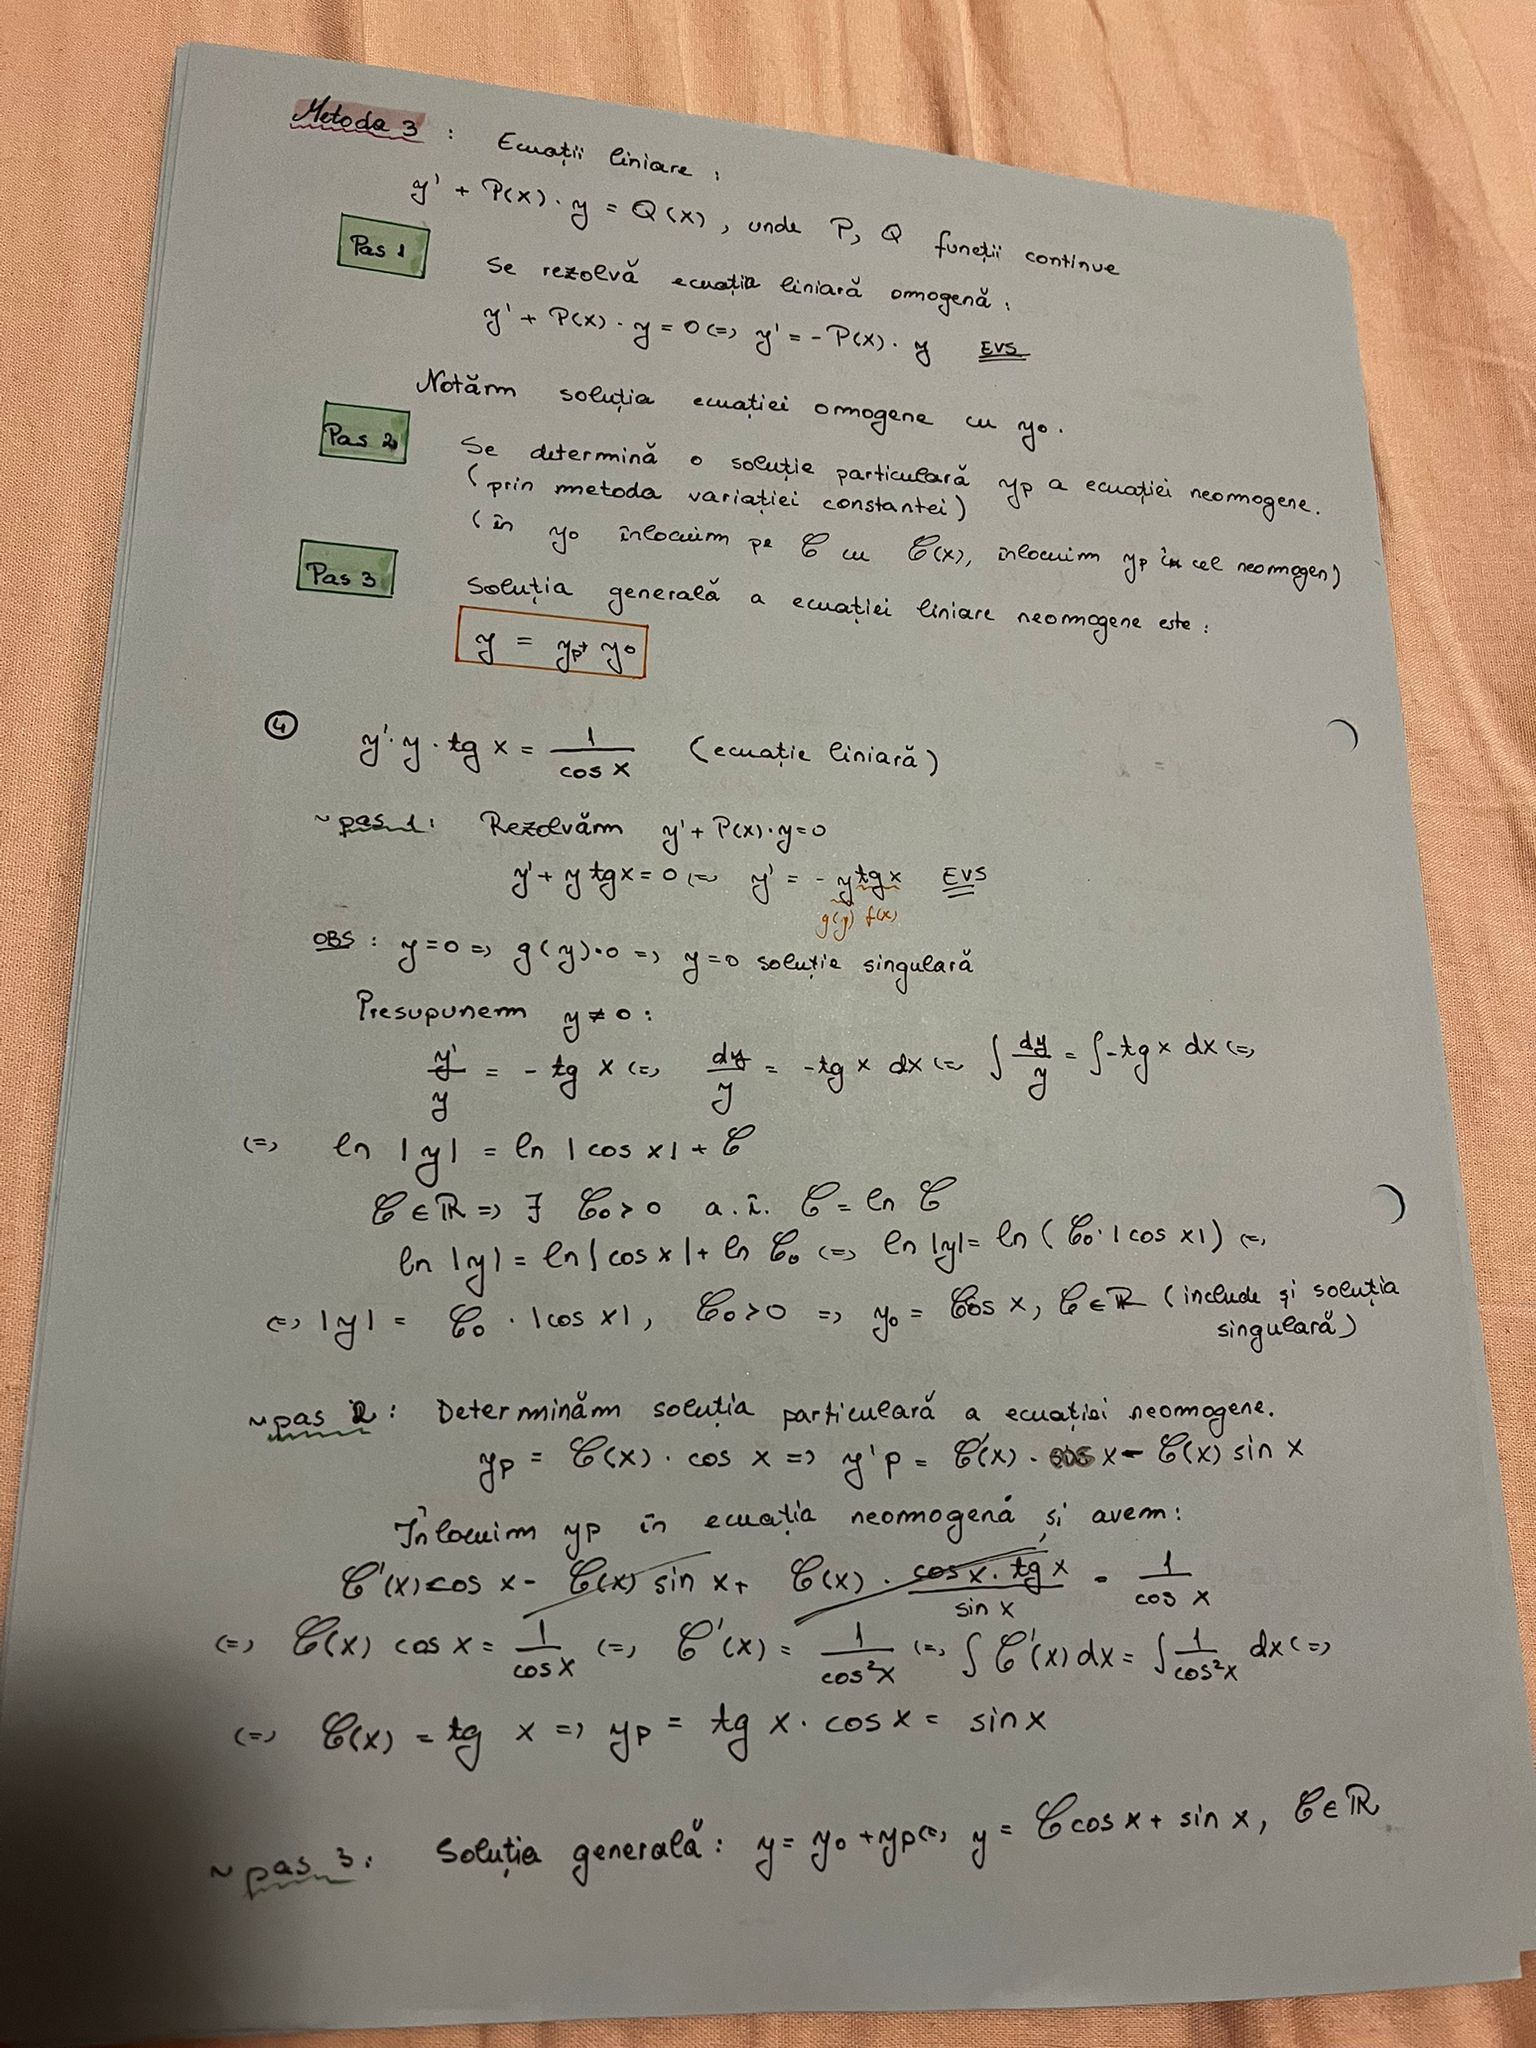 Metoda 3 : Ecuații liniare :
y' + P(x) · y = Q(x) , unde P, Q funcții continue
Pas 1 Se rezolvă ecuația liniară omogenă :
y' + P(x) · y = 0 (=) y' = - P(x) · y EVS
Notăm soluția ecuației omogene cu y₀ .
Pas 2 Se determină o soluție particulară yp a ecuației neomogene.
(prin metoda variației constantei)
(în y₀ înlocuim pe C cu C(x), înlocuim yp în cel neomogen)
Pas 3 Soluția generală a ecuației liniare neomogene este :
y = yp + y₀
④ y' · y · tg x = 1/cos x (ecuație liniară)
~ pas 1 : Rezolvăm y' + P(x) · y = 0
y' + y tg x = 0 (=) y' = - y tg x EVS
g(y) f(x)
OBS : y = 0 => g(y) · 0 => y = 0 soluție singulară
Presupunem y ≠ 0 :
y'/y = - tg x (=) dy/y = - tg x dx (=) ∫ dy/y = ∫ - tg x dx (=)
(=) ln |y| = ln |cos x| + C
C ∈ ℝ => ∃ C₀ > 0 a. î. C = ln C
ln |y| = ln |cos x| + ln C₀ (=) ln |y| = ln (C₀ · |cos x|) (=)
(=) |y| = C₀ · |cos x| , C₀ > 0 => y₀ = Cos x, C ∈ ℝ (include și soluția
singulară)
~ pas 2 : Determinăm soluția particulară a ecuației neomogene.
yp = C(x) · cos x => y'p = C'(x) · cos x - C(x) sin x
Înlocuim yp în ecuația neomogenă și avem :
C'(x) cos x - C(x) sin x + C(x) · cos x · tg x = 1/cos x
sin x
(=) C(x) cos x = 1/cos x (=) C'(x) = 1/cos²x (=) ∫ C'(x) dx = ∫ 1/cos²x dx (=)
(=) C(x) = tg x => yp = tg x · cos x = sin x
~ pas 3 : Soluția generală : y = y₀ + yp (=) y = C cos x + sin x , C ∈ ℝ